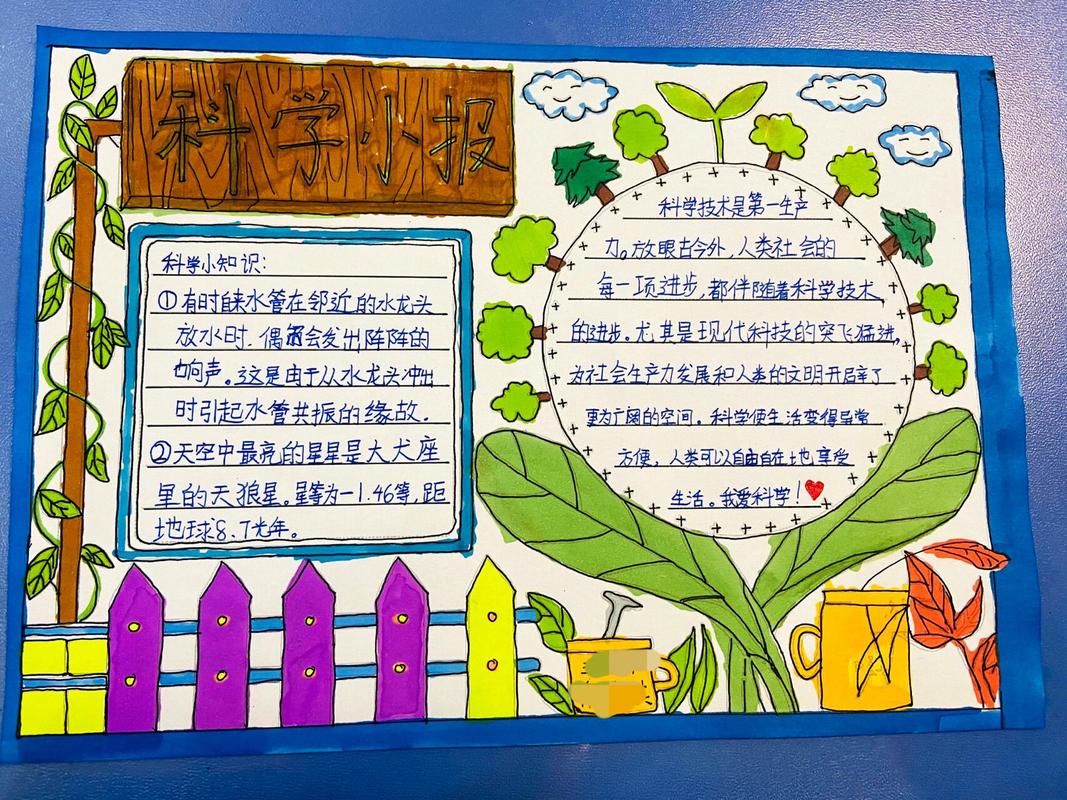 科学小报
科学小知识:
①有时自来水管在邻近的水龙头
放水时.偶尔会发出阵阵的
响声。这是由于从水龙头冲出
时引起水管共振的缘故.
②天空中最亮的星星是大犬座
里的天狼星。星等为-1.46等,距
地球8.7光年。
科学技术是第一生产
力。放眼古今外,人类社会的
每一项进步,都伴随着科学技术
的进步.尤其是现代科技的突飞猛进,
为社会生产力发展和人类的文明开辟了
更为广阔的空间.科学使生活变得异常
方便,人类可以自由自在地享受
生活。我爱科学!